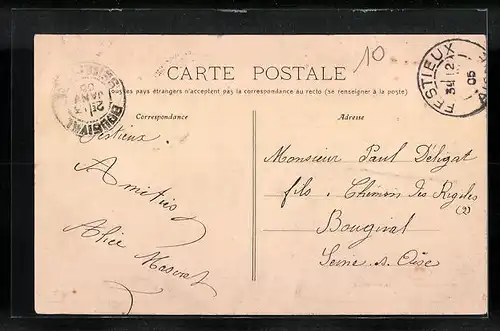 10
CARTE POSTALE
les pays étrangers n'acceptent pas la correspondance au recto (se renseigner à la poste)
Correspondance
Adresse
FESTIEUX
05
BOUGIVAL
JANV
05
Festieux
Amitiés
Alice
Monsieur Paul Déligat
fils, Chemin des
(2)
Bougival
Seine s. Oise